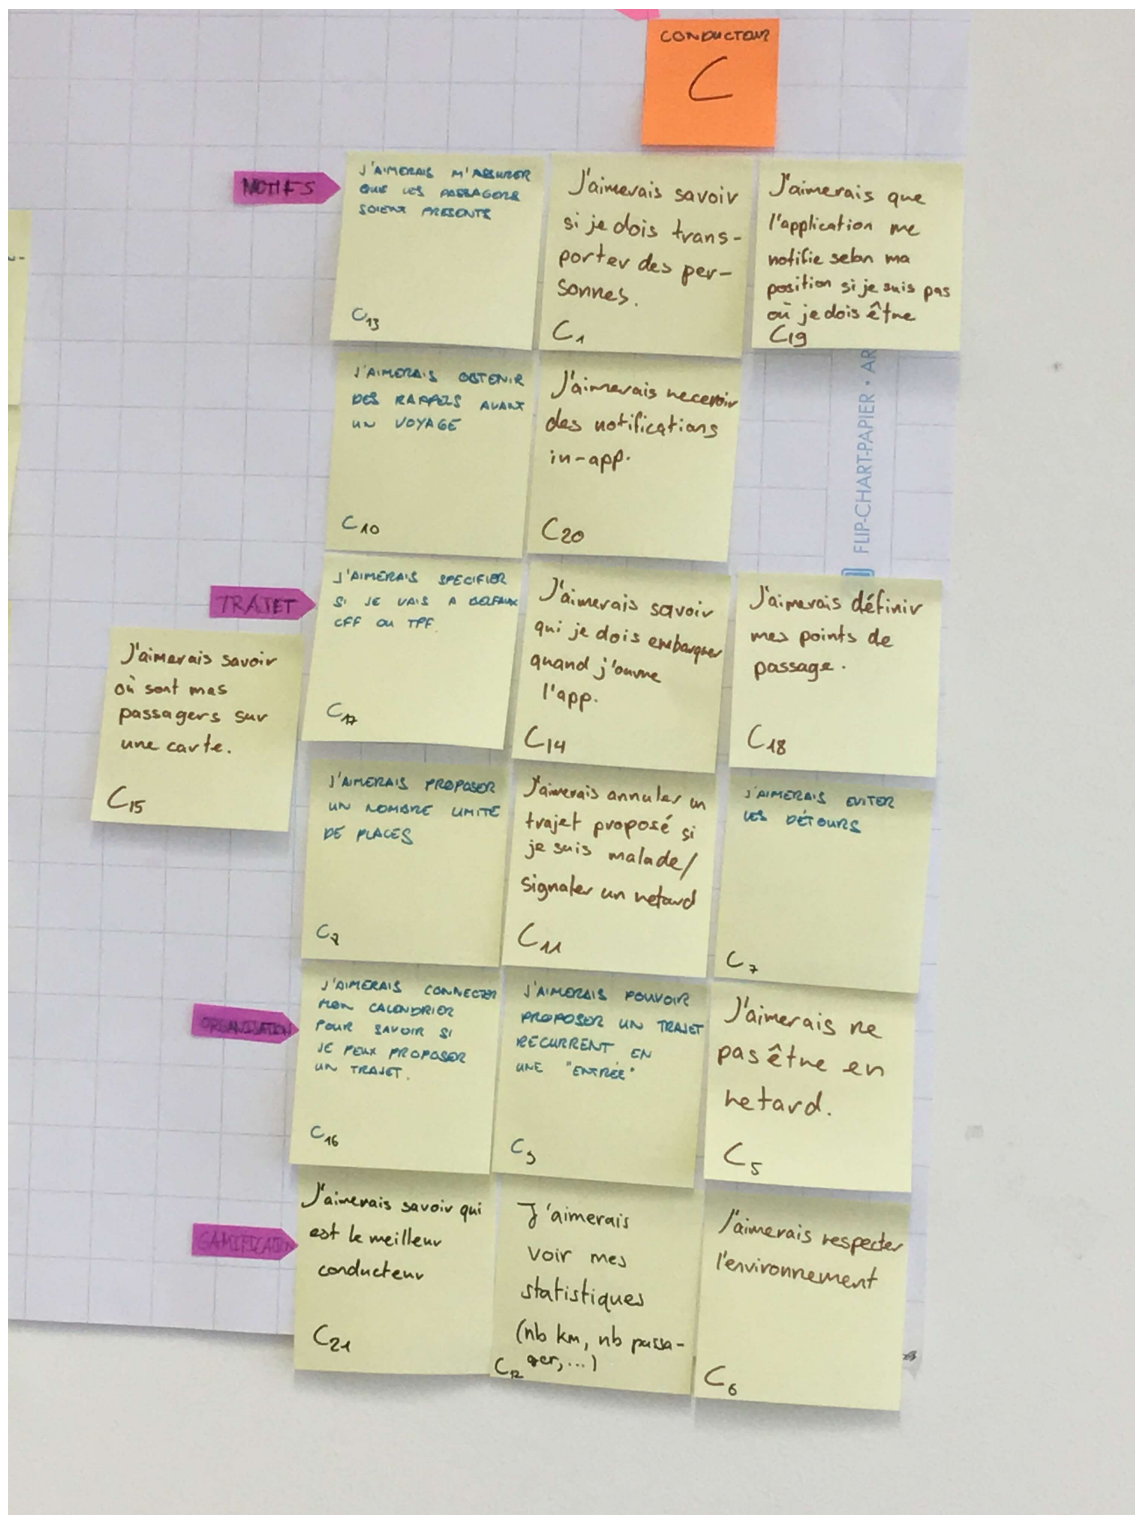 CONDUCTEUR
C
NOTIFS
J'AIMERAIS M'ASSURER
QUE LES PASSAGERS
SOIENT PRESENTS
C13
J'aimerais savoir
si je dois trans-
porter des per-
sonnes.
C1
J'aimerais que
l'application me
notifie selon ma
position si je suis pas
où je dois être
C19
J'AIMERAIS OBTENIR
DES RAPPELS AVANT
UN VOYAGE
C10
J'aimerais recevoir
des notifications
in-app.
C20
FLIP-CHART-PAPIER • AR
TRAJET
J'aimerais savoir
où sont mes
passagers sur
une carte.
C15
J'AIMERAIS SPECIFIER
SI JE VAIS A BELFAUX
CFF OU TPF.
C17
J'aimerais savoir
qui je dois embarquer
quand j'ouvre
l'app.
C14
J'aimerais définir
mes points de
passage.
C18
J'AIMERAIS PROPOSER
UN NOMBRE LIMITE
DE PLACES
J'aimerais annuler un
trajet proposé si
je suis malade/
signaler un retard
C11
J'AIMERAIS EVITER
LES DÉTOURS
C7
ORGANISATION
J'AIMERAIS CONNECTER
MON CALENDRIER
POUR SAVOIR SI
JE PEUX PROPOSER
UN TRAJET.
C16
J'AIMERAIS POUVOIR
PROPOSER UN TRAJET
RECURRENT EN
UNE "ENTRÉE"
C9
J'aimerais ne
pas être en
retard.
C5
GAMIFICATION
J'aimerais savoir qui
est le meilleur
conducteur
C21
J'aimerais
voir mes
statistiques
(nb km, nb passa-
ger,...)
C12
J'aimerais respecter
l'environnement
C6